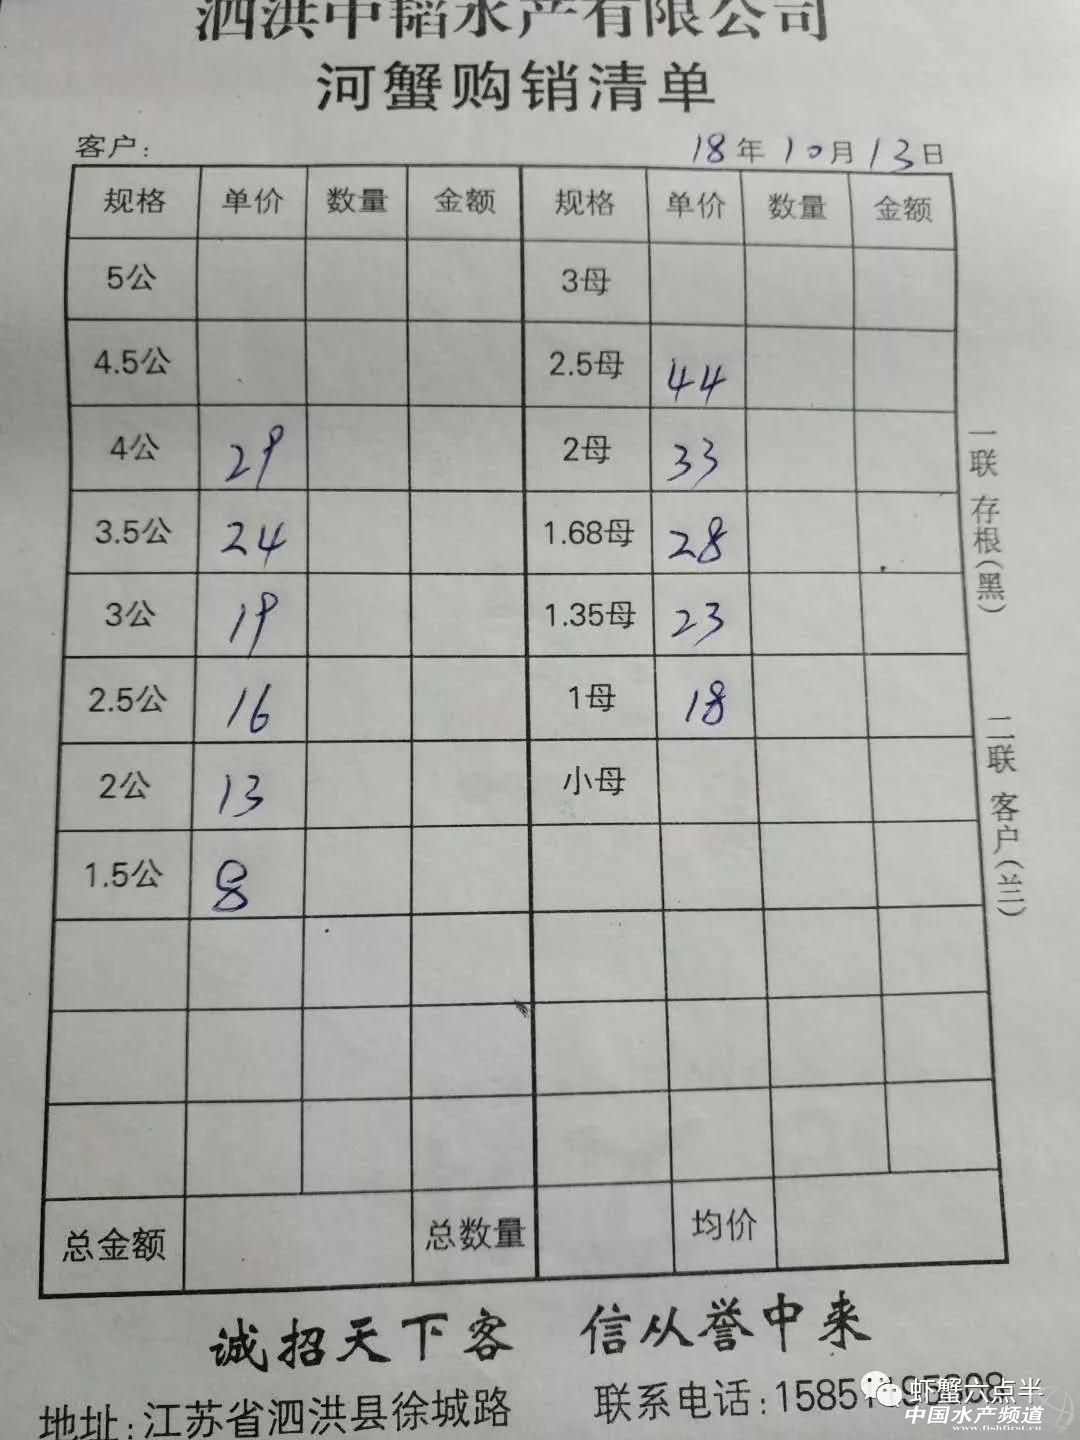 泗洪中韬水产有限公司
河蟹购销清单
客户: 18年10月13日
规格 单价 数量 金额 规格 单价 数量 金额
5公 3母
4.5公 2.5母 44
4公 29 2母 33
3.5公 24 1.68母 28
3公 19 1.35母 23
2.5公 16 1母 18
2公 13 小母
1.5公 8
总金额 总数量 均价
一联 存根(黑)
二联 客户(兰)
诚招天下客 信从誉中来
地址:江苏省泗洪县徐城路 联系电话:1585
虾蟹六点半
中国水产频道
www.fishfirst.cn